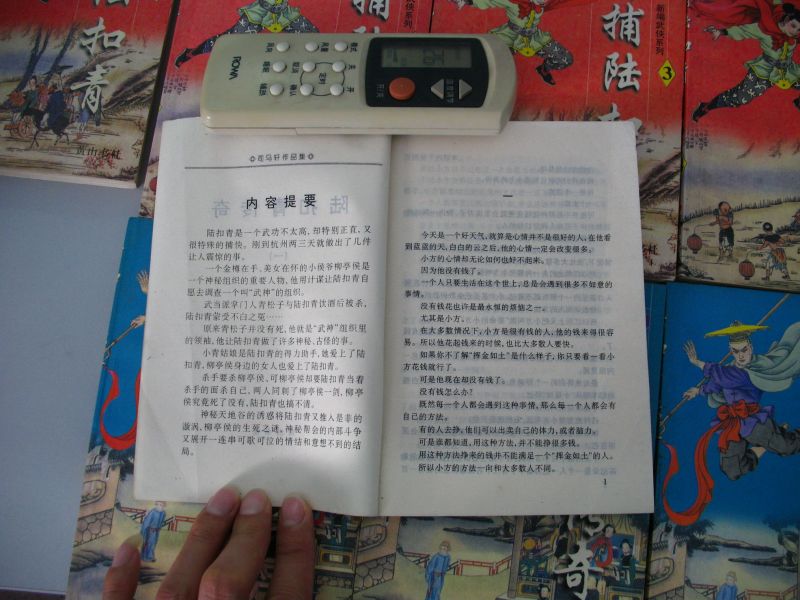 扣青
黄山书社
捕陆
新编武侠系列
捕陆
3
ROWA
开/关
司马轩作品集
内容提要
陆扣青是一个武功不太高,却特别正直,又
很特殊的捕快。刚到杭州两三天就做出了几件
让人震惊的事。
一个金樽在手、美女在怀的小侯爷柳亭侯是
一个神秘组织的重要人物,他用计谋让陆扣青自
愿去调查一个叫“武神”的组织。
武当派掌门人青松子与陆扣青饮酒后被杀,
陆扣青蒙受不白之冤……
原来青松子并没有死,他就是“武神”组织里
的领袖,他让陆扣青做了许多神秘、古怪的事。
小青姑娘是陆扣青的得力助手,她爱上了陆
扣青,柳亭侯身边的女人也爱上了陆扣青。
杀手要杀柳亭侯,可柳亭侯却要陆扣青当着
杀手的面杀自己,两人同刺了柳亭侯一剑,柳亭
侯究竟死了没有,陆扣青也搞不清。
神秘天地谷的诱惑将陆扣青又推入是非的
漩涡,柳亭侯的生死之谜,神秘帮会的内部斗争
又展开一连串可歌可泣的情结和意想不到的结
局。
一
今天是一个好天气,就算是心情并不是很好的人,在他看
到蓝蓝的天,白白的云之后,他的心情一定会改变很多。
小方的心情却无论如何也好不起来。
因为他没有钱了。
一个人只要生活在这个世上,总是会遇到很多不如意的
事情。
没有钱花也许是最永恒的烦恼之一。
尤其是小方。
在大多数情况下,小方是很有钱的人,他的钱来得很容
易。所以他花起钱来的时候,也比大多数人要快。
如果你不了解“挥金如土”是什么样子,你只要看一看小
方花钱就行了。
可是他现在却没有钱了。
没有钱怎么办?
既然每一个人都会遇到这种事情,那么每一个人都会有
自己的方法。
有的人去挣,他们可以出卖自己的体力,或者脑力。
可是谁都知道,用这种方法,并不能挣很多钱。
用这种方法挣来的钱并不能满足一个“挥金如土”的人。
所以小方的方法一向和大多数人不同。
1
传奇